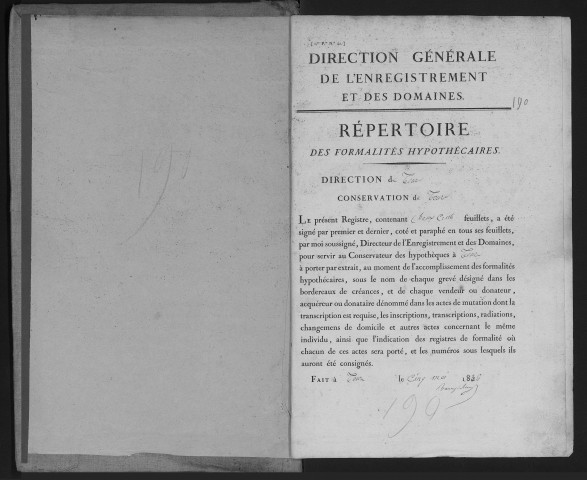 DIRECTION GÉNÉRALE
DE L'ENREGISTREMENT
ET DES DOMAINES.
190
RÉPERTOIRE
DES FORMALITÉS HYPOTHÉCAIRES.
DIRECTION de
CONSERVATION de
LE présent Registre, contenant feuillets, a été
signé par premier et dernier, coté et paraphé en tous ses feuillets,
par moi soussigné, Directeur de l'Enregistrement et des Domaines,
pour servir au Conservateur des hypothèques à
à porter par extrait, au moment de l'accomplissement des formalités
hypothécaires, sous le nom de chaque grevé désigné dans les
bordereaux de créances, et de chaque vendeur ou donateur,
acquéreur ou donataire dénommé dans les actes de mutation dont la
transcription est requise, les inscriptions, transcriptions, radiations,
changemens de domicile et autres actes concernant le même
individu, ainsi que l'indication des registres de formalité où
chacun de ces actes sera porté, et les numéros sous lesquels ils
auront été consignés.
FAIT à le Cinq mai
190